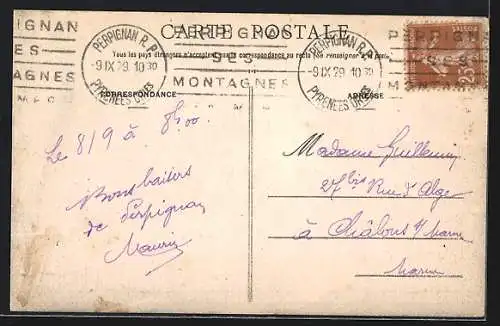 CARTE POSTALE
PERPIGNAN
SES
MONTAGNES
PERPIGNAN R.P.
-9 IX 29 10 30
PYRENEES ORles
PERPIGNAN
SES
MONTAGNES
PERPIGNAN R.P.
-9 IX 29 10 30
PYRENEES ORles
PERPIGN
SES
MON
Tous les pays étrangers n'acceptent pas la correspondance au recto (se renseigner à la poste)
CORRESPONDANCE
ADRESSE
Le 8/9 à 8h00
Bons baisers
de Perpignan
Maurice
Madame Guillemin
27 bis Rue d'Alger
à Châlons s/ Marne
Marne